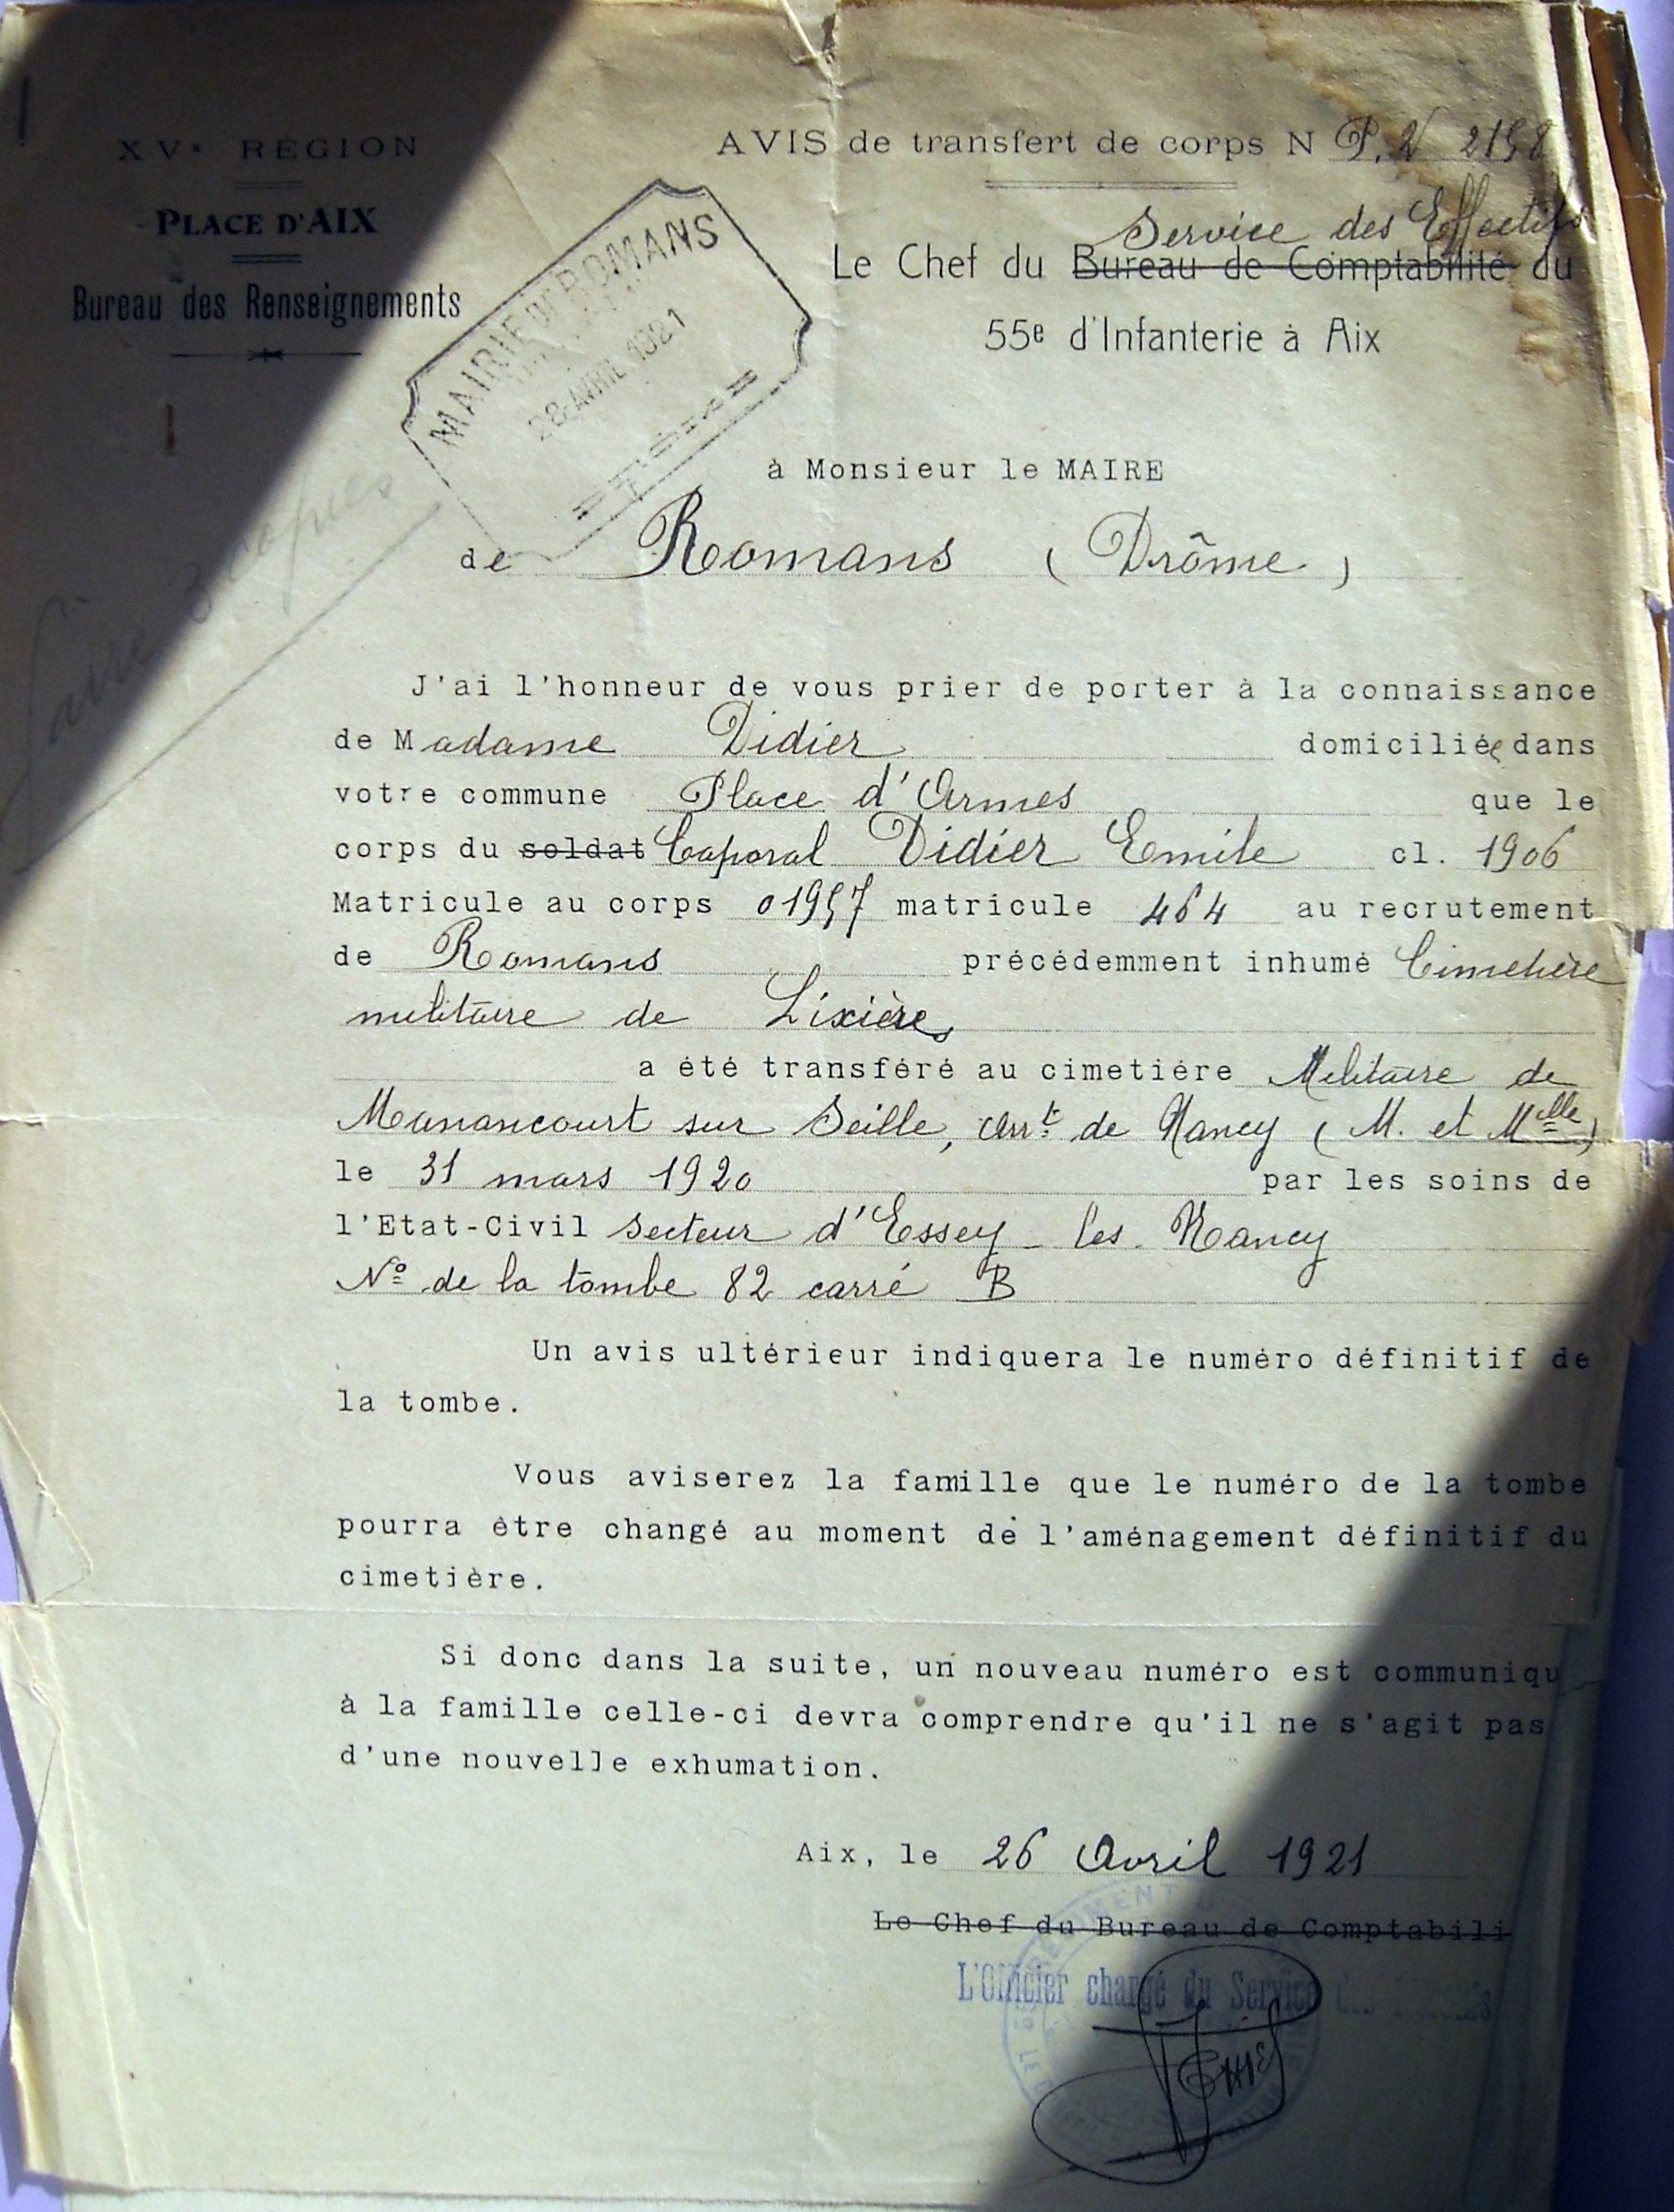 XVe RÉGION
PLACE D'AIX
Bureau des Renseignements
AVIS de transfert de corps N P.V 2158
Service des Effectifs
Le Chef du Bureau de Comptabilité du
55e d'Infanterie à Aix
MAIRIE DE ROMANS
28 AVRIL 1921
faire 3 copies
à Monsieur le MAIRE
de Romans (Drôme)
J'ai l'honneur de vous prier de porter à la connaissance
de Madame Didier domiciliée dans
votre commune Place d'Armes que le
corps du soldat Caporal Didier Emile cl. 1906
Matricule au corps 01957 matricule 464 au recrutement
de Romans précédemment inhumé Cimetière
militaire de Lixières
a été transféré au cimetière Militaire de
Manancourt sur Seille, arrt de Nancy (M. et Mlle)
le 31 mars 1920 par les soins de
l'Etat-Civil secteur d'Essey-les-Nancy
No de la tombe 82 carré B
Un avis ultérieur indiquera le numéro définitif de
la tombe.
Vous aviserez la famille que le numéro de la tombe
pourra être changé au moment de l'aménagement définitif du
cimetière.
Si donc dans la suite, un nouveau numéro est communiqu
à la famille celle-ci devra comprendre qu'il ne s'agit pas
d'une nouvelle exhumation.
Aix, le 26 Avril 1921
Le Chef du Bureau de Comptabili
L'Officier chargé du Service des